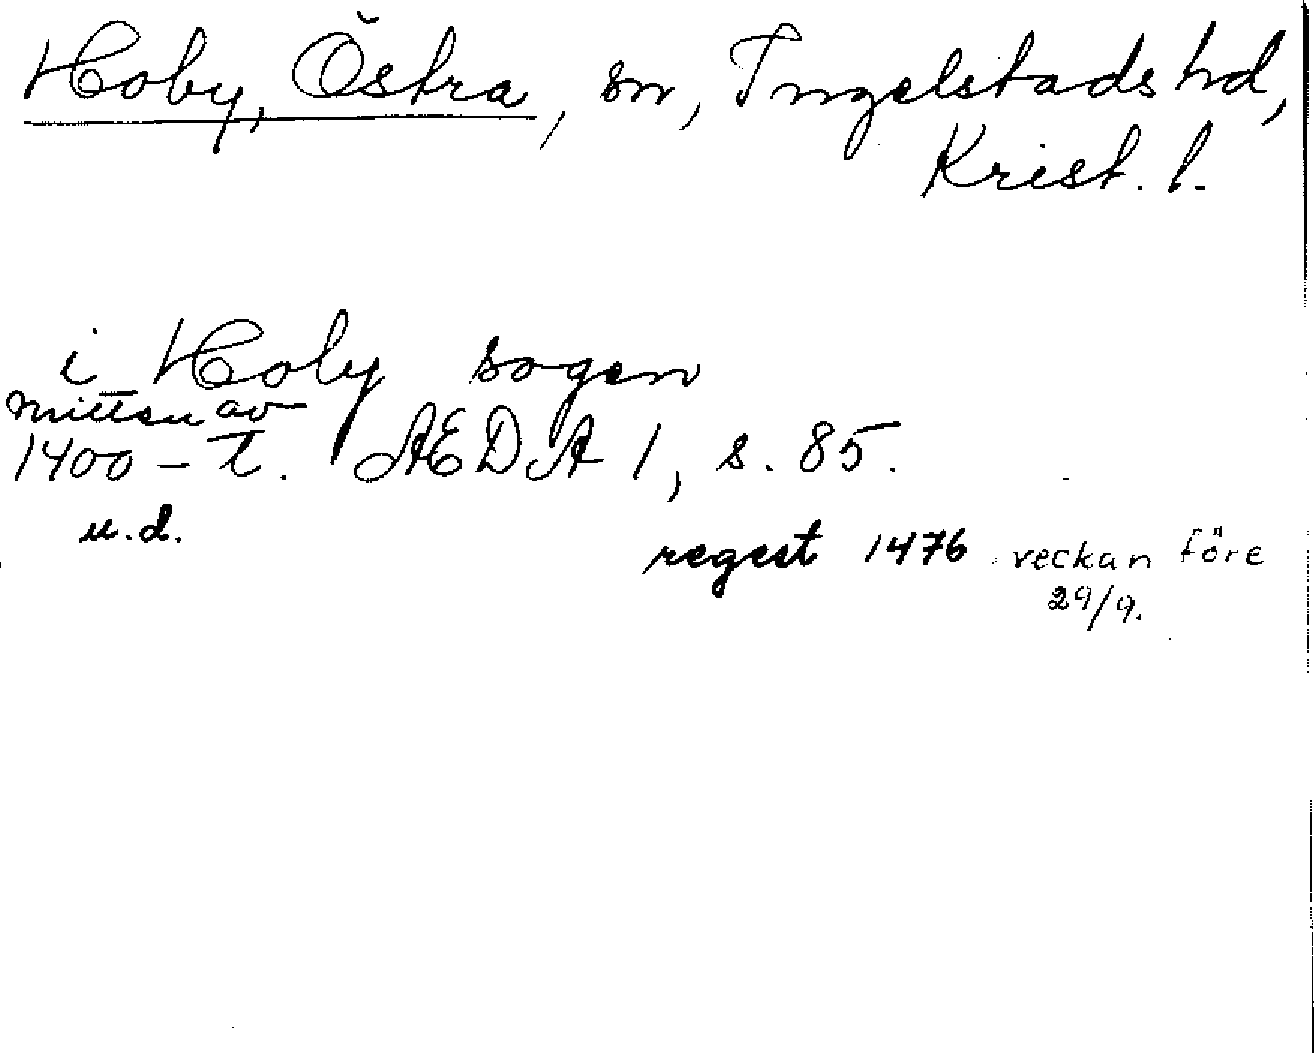 Hoby, Östra, sn, Ingelstads hd,
Krist. l.
i Hoby sogen
mitten av
1400-t. AEDA 1, s. 85.
u.d.
regest 1476 veckan före
29/9.